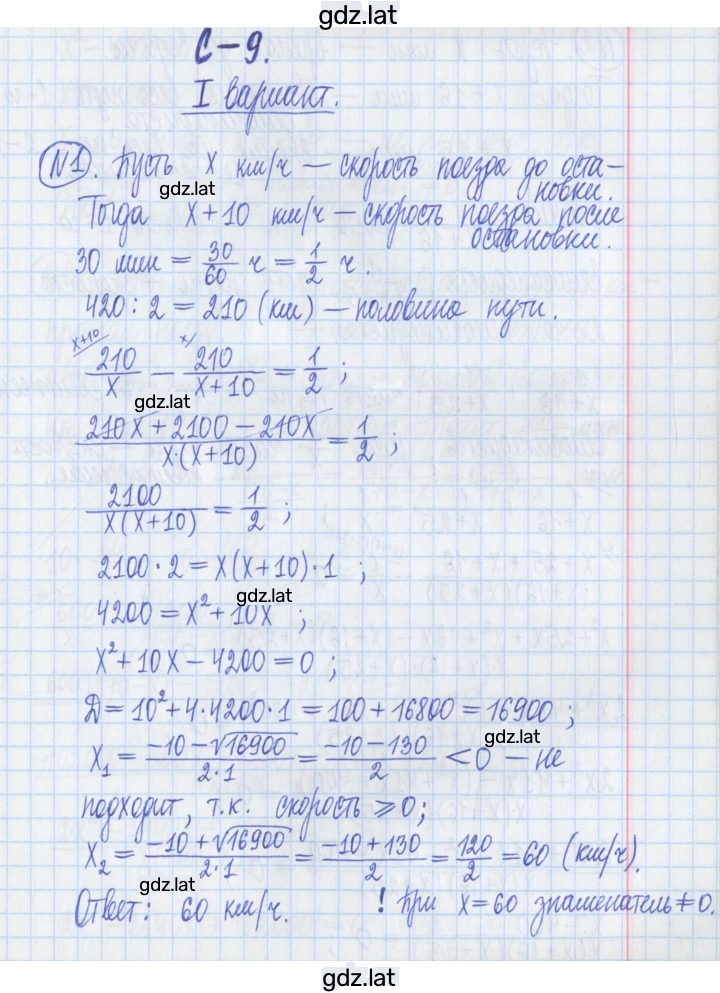 gdz.lat
С-9.
I вариант.
№1. Пусть x км/ч — скорость поезда до оста-
новки.
gdz.lat
Тогда x+10 км/ч — скорость поезда после
остановки.
30 мин = 30/60 ч = 1/2 ч.
420 : 2 = 210 (км) — половина пути.
x+10/ 210/x - x/ 210/(x+10) = 1/2 ;
gdz.lat
(210x + 2100 - 210x)/(x·(x+10)) = 1/2 ;
2100/(x(x+10)) = 1/2 ;
2100 · 2 = x(x+10) · 1 ;
gdz.lat
4200 = x² + 10x ;
x² + 10x - 4200 = 0 ;
Д = 10² + 4·4200·1 = 100 + 16800 = 16900 ;
gdz.lat
x₁ = (-10 - √16900)/(2·1) = (-10 - 130)/2 < 0 — не
подходит, т.к. скорость ⩾ 0;
x₂ = (-10 + √16900)/(2·1) = (-10 + 130)/2 = 120/2 = 60 (км/ч).
gdz.lat
Ответ: 60 км/ч. ! При x = 60 знаменатель ≠ 0.
gdz.lat